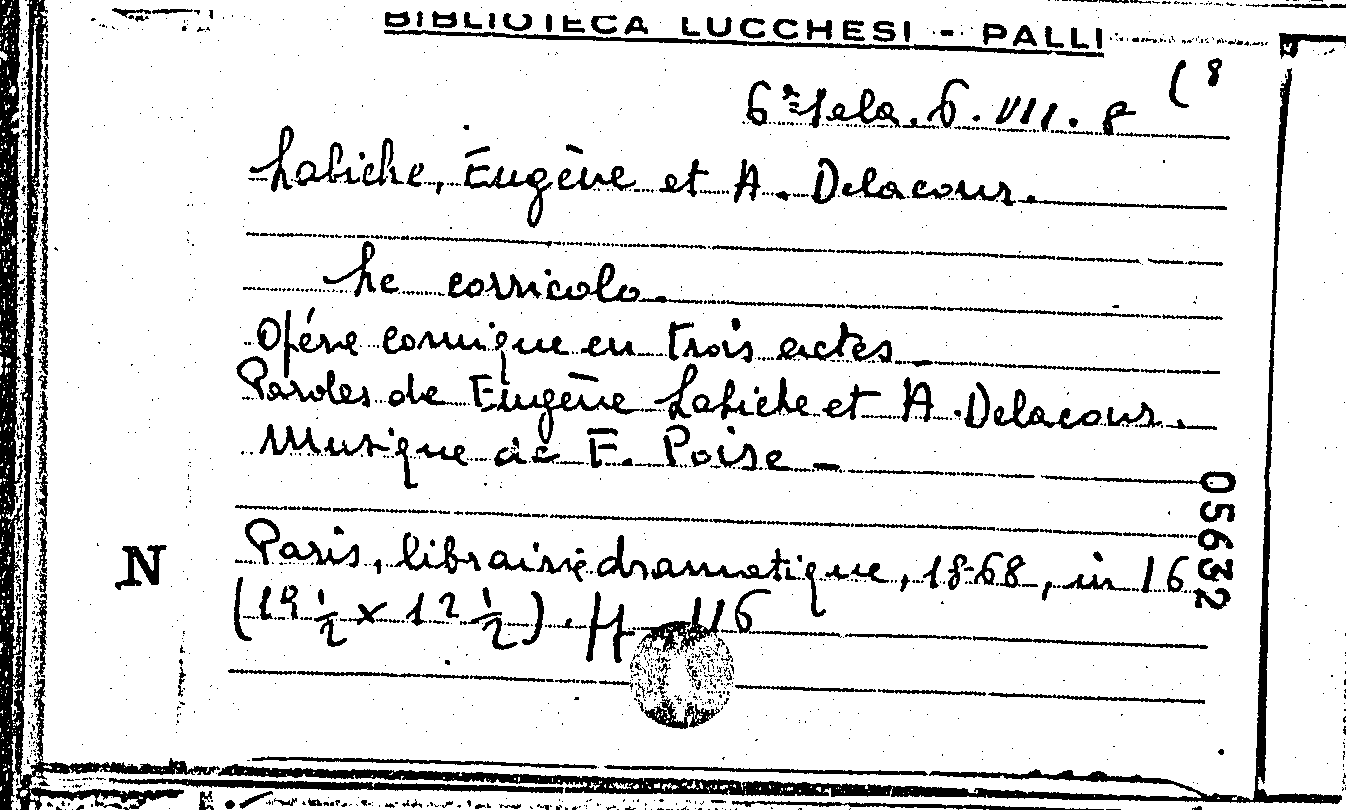 BIBLIOTECA LUCCHESI - PALLI
6ª Sala. 6. VII. 8 (8
Labiche, Eugène et A. Delacour.
Le corricolo.
Opéra comique en trois actes
Paroles de Eugène Labiche et A. Delacour.
Musique de F. Poise -
N
Paris, librairie dramatique, 1868, in 16
(19 1/2 x 12 1/2). pp. 116
05632